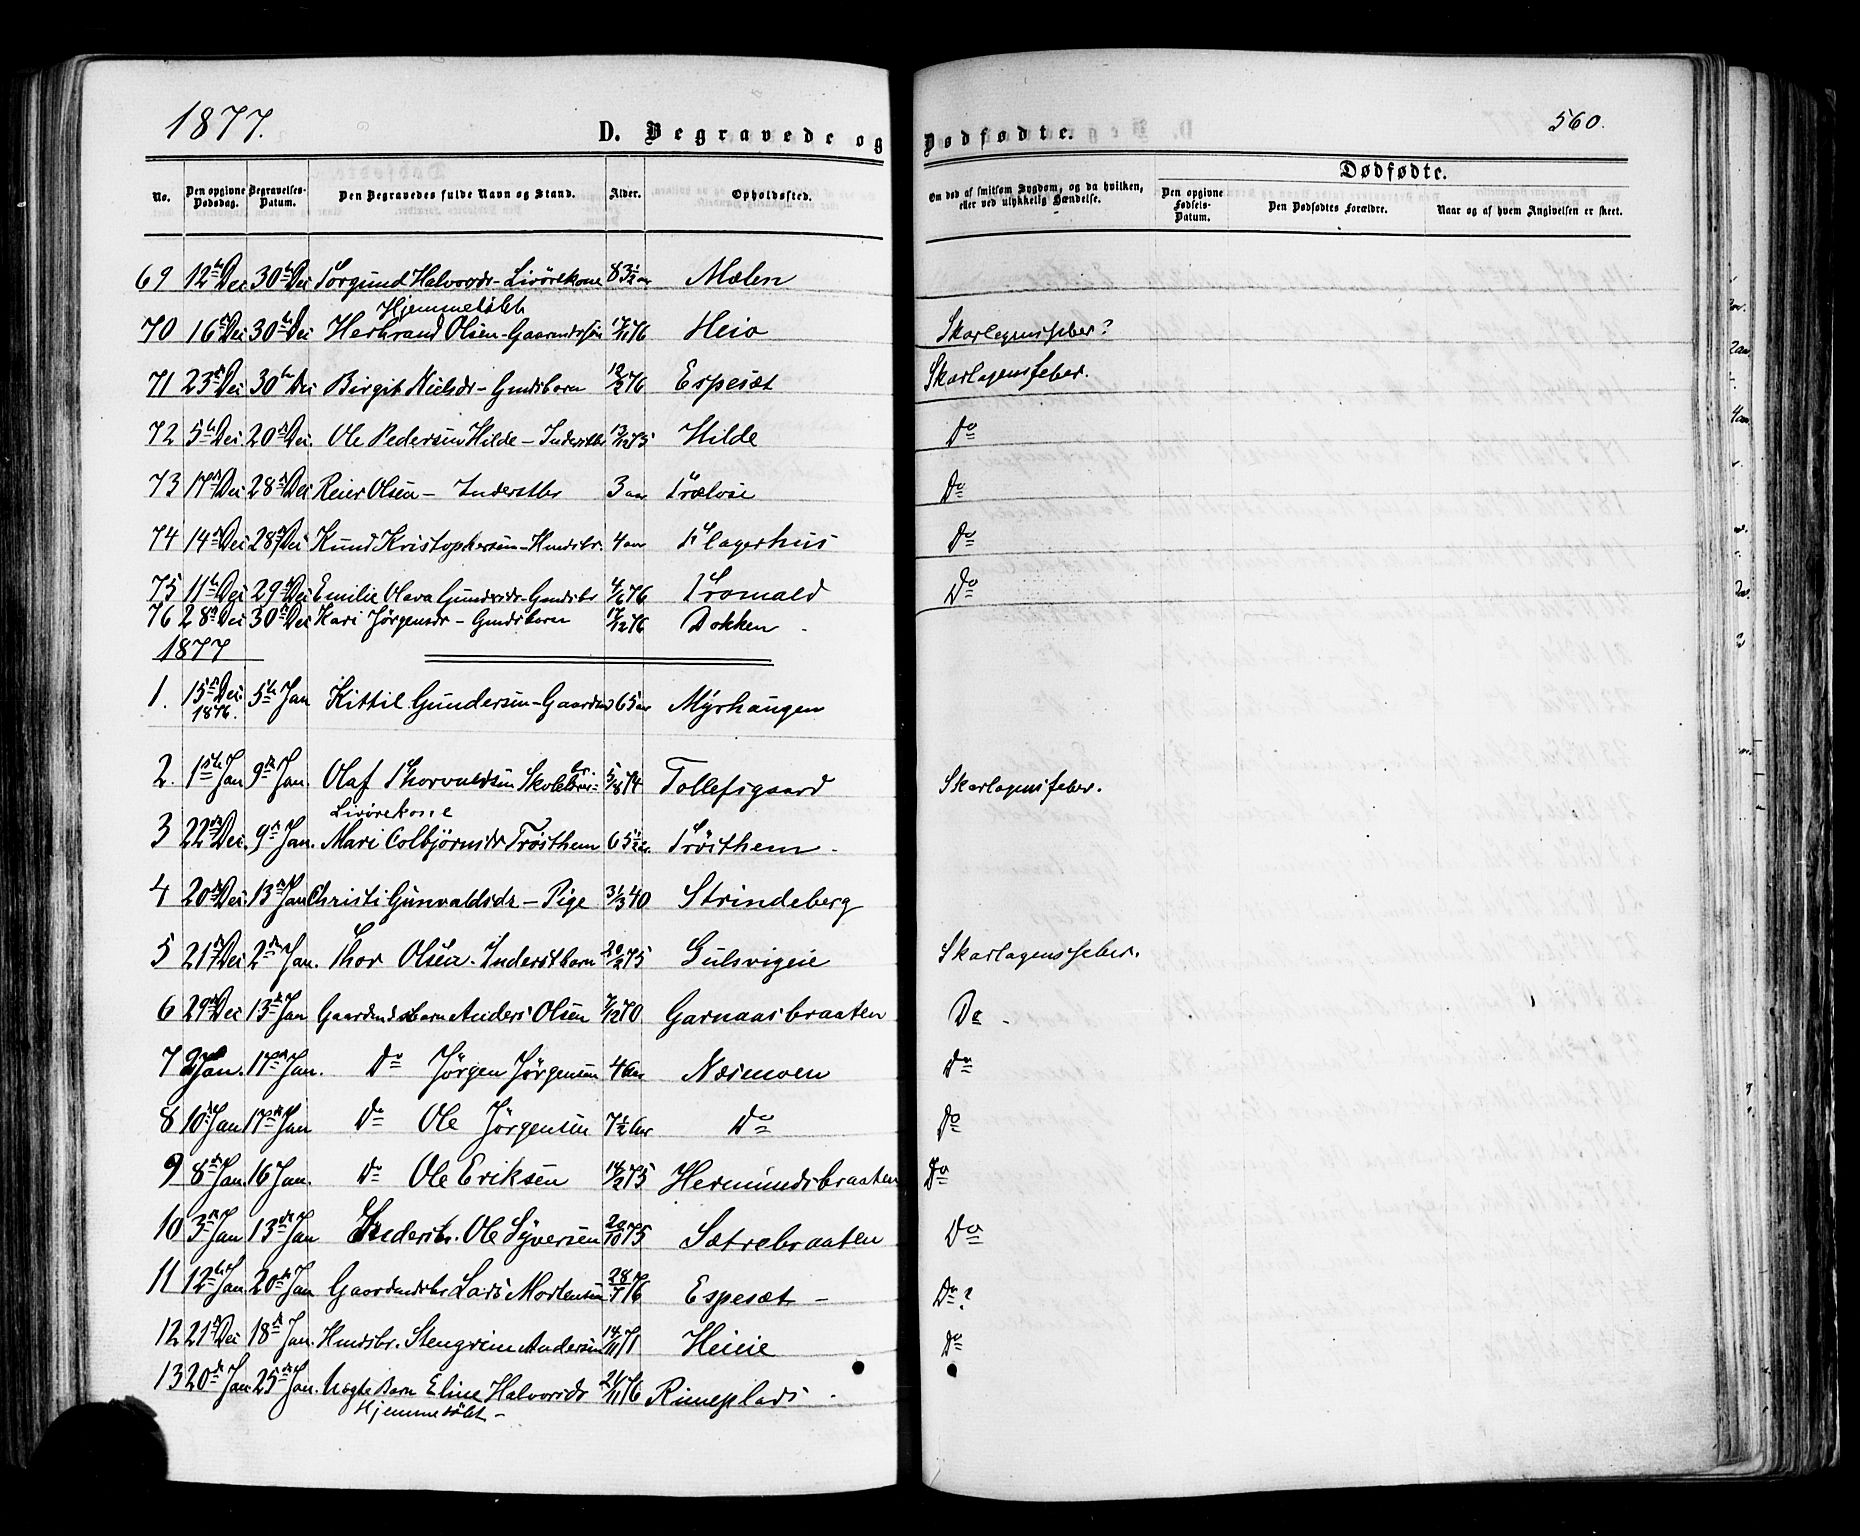 1877.
D. Begravede og Dødfødte.
560.
No. Den opgivne Dødsdag. Begravelses-Datum. Den Begravedes fulde Navn og Stand. Alder. Opholdssted. Om død af smitsom Sygdom, og da hvilken, eller ved ulykkelig Hændelse. Dødfødte. Den opgivne Fødsels-Datum. Den Dødfødtes Forældre. Naar og af hvem Angivelsen er skeet.
69 12te Dec 30te Dec Torgund Halvorsdr - Livörekone 83½ aar Mælen
Hjemmedöbt
70 16de Dec 30te Dec Herbrand Olsen - Gaarmdssön 17/11 76 Heio Skarlagensfeber?
71 23de Dec 30te Dec Birgit Nielsdr - Gmdsbarn 12/2 76 Espesæt Skarlagensfeber.
72 5te Dec. 20de Dec. Ole Pedersen Hilde - Inderstbr 13/12 75 Hilde Do
73 17de Dec 28de Dec Reier Olsen - Inderstbr 3 aar Trælose Do
74 14de Dec 28de Dec Knud Kristophersen - Hmdsbr. 4 aar Klagerhus Do
75 11te Dec 29de Dec Emilie Olava Gundersdr - Gmdsbr 4/6 76 Tromald Do
76 28de Dec 30te Dec Kari Jörgensdr - Gmdsbarn 17/12 76 Dokken -
1877
1. 15de Dec. 1876. 5te Jan Kittil Gundersen - Gaardmd 65 aar Myrhaugen
2. 1ste Jan 9de Jan. Olaf Thorvaldsen Skolelbr. 5/8 74 Tollefsgaard Skarlagensfeber.
Livörekone
3 22de Dec. 9de Jan. Mari Colbjörnsdr Tröisthem 65½ ar. Tröisthem -
4 20de Dec. 13de Jan Christi Gunvaldsdr - Pige 31/3 40 Strindeberg
5 21de Dec 2den Jan. Thor Olsen - Inderstbarn 20/2 75 Gulsvigeie Skarlagensfeber.
6 29de Dec 13de Jan Gaardmdsbarn Anders Olsen 7/12 70 Garnaasbraaten Do -
7 2den Jan. 17de Jan. Do Jörgen Jörgensen 4 aar Næsmoen Do
8 10de Jan 17de Jan Do Ole Jörgensen 7½ aar Do Do
9 8de Jan. 16 Jan. Do Ole Eriksen 14/2 75 Hermundsbraaten Do
10 3de Jan 13de Jan Inderstbr. Ole Syversen 20/10 75 Sætrebraaten Do
11 12te Jan. 20de Jan Gaardmdsbr Lars Mortensen 28/7 76 Espesæt - Do?
12 21de Dec 18de Jan. Hmdsbr. Stengrim Andersen 14/11 71 Heieie Do
13 20de Jan 25de Jan. Uægte Barn Eline Halvorsdr 21/11 76 Rimeplads -
Hjemmedöbt -